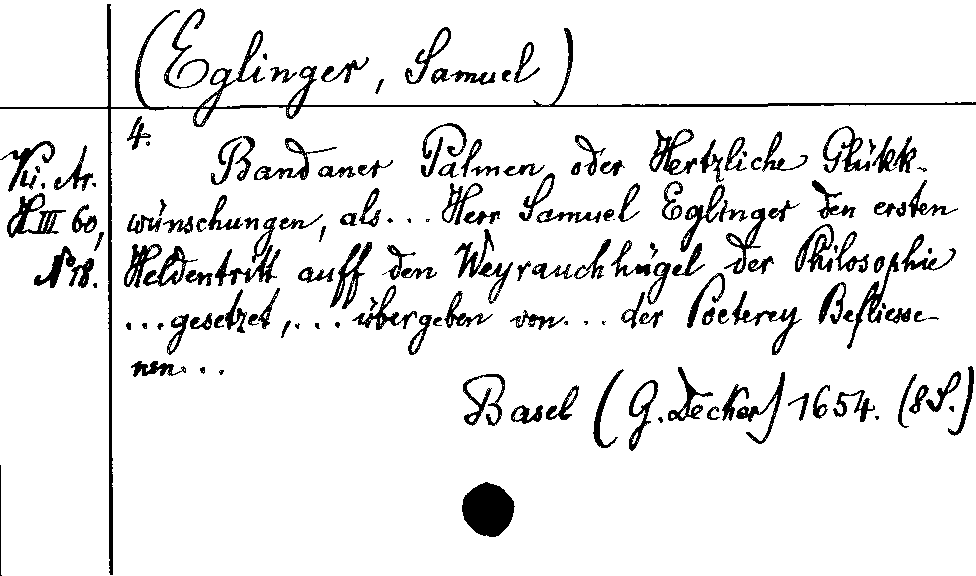 (Eglinger, Samuel)
4.
Ki. Ar.
H III 60,
No 18.
Bandaner Palmen oder Hertzliche Glükk-
wünschungen, als... Herr Samuel Eglinger den ersten
Heldentritt auff den Weyrauchhügel der Philosophie
...gesetzet,... übergeben von... der Poeterey Befliesse-
nen...
Basel (G. Decker) 1654. (8 S.)